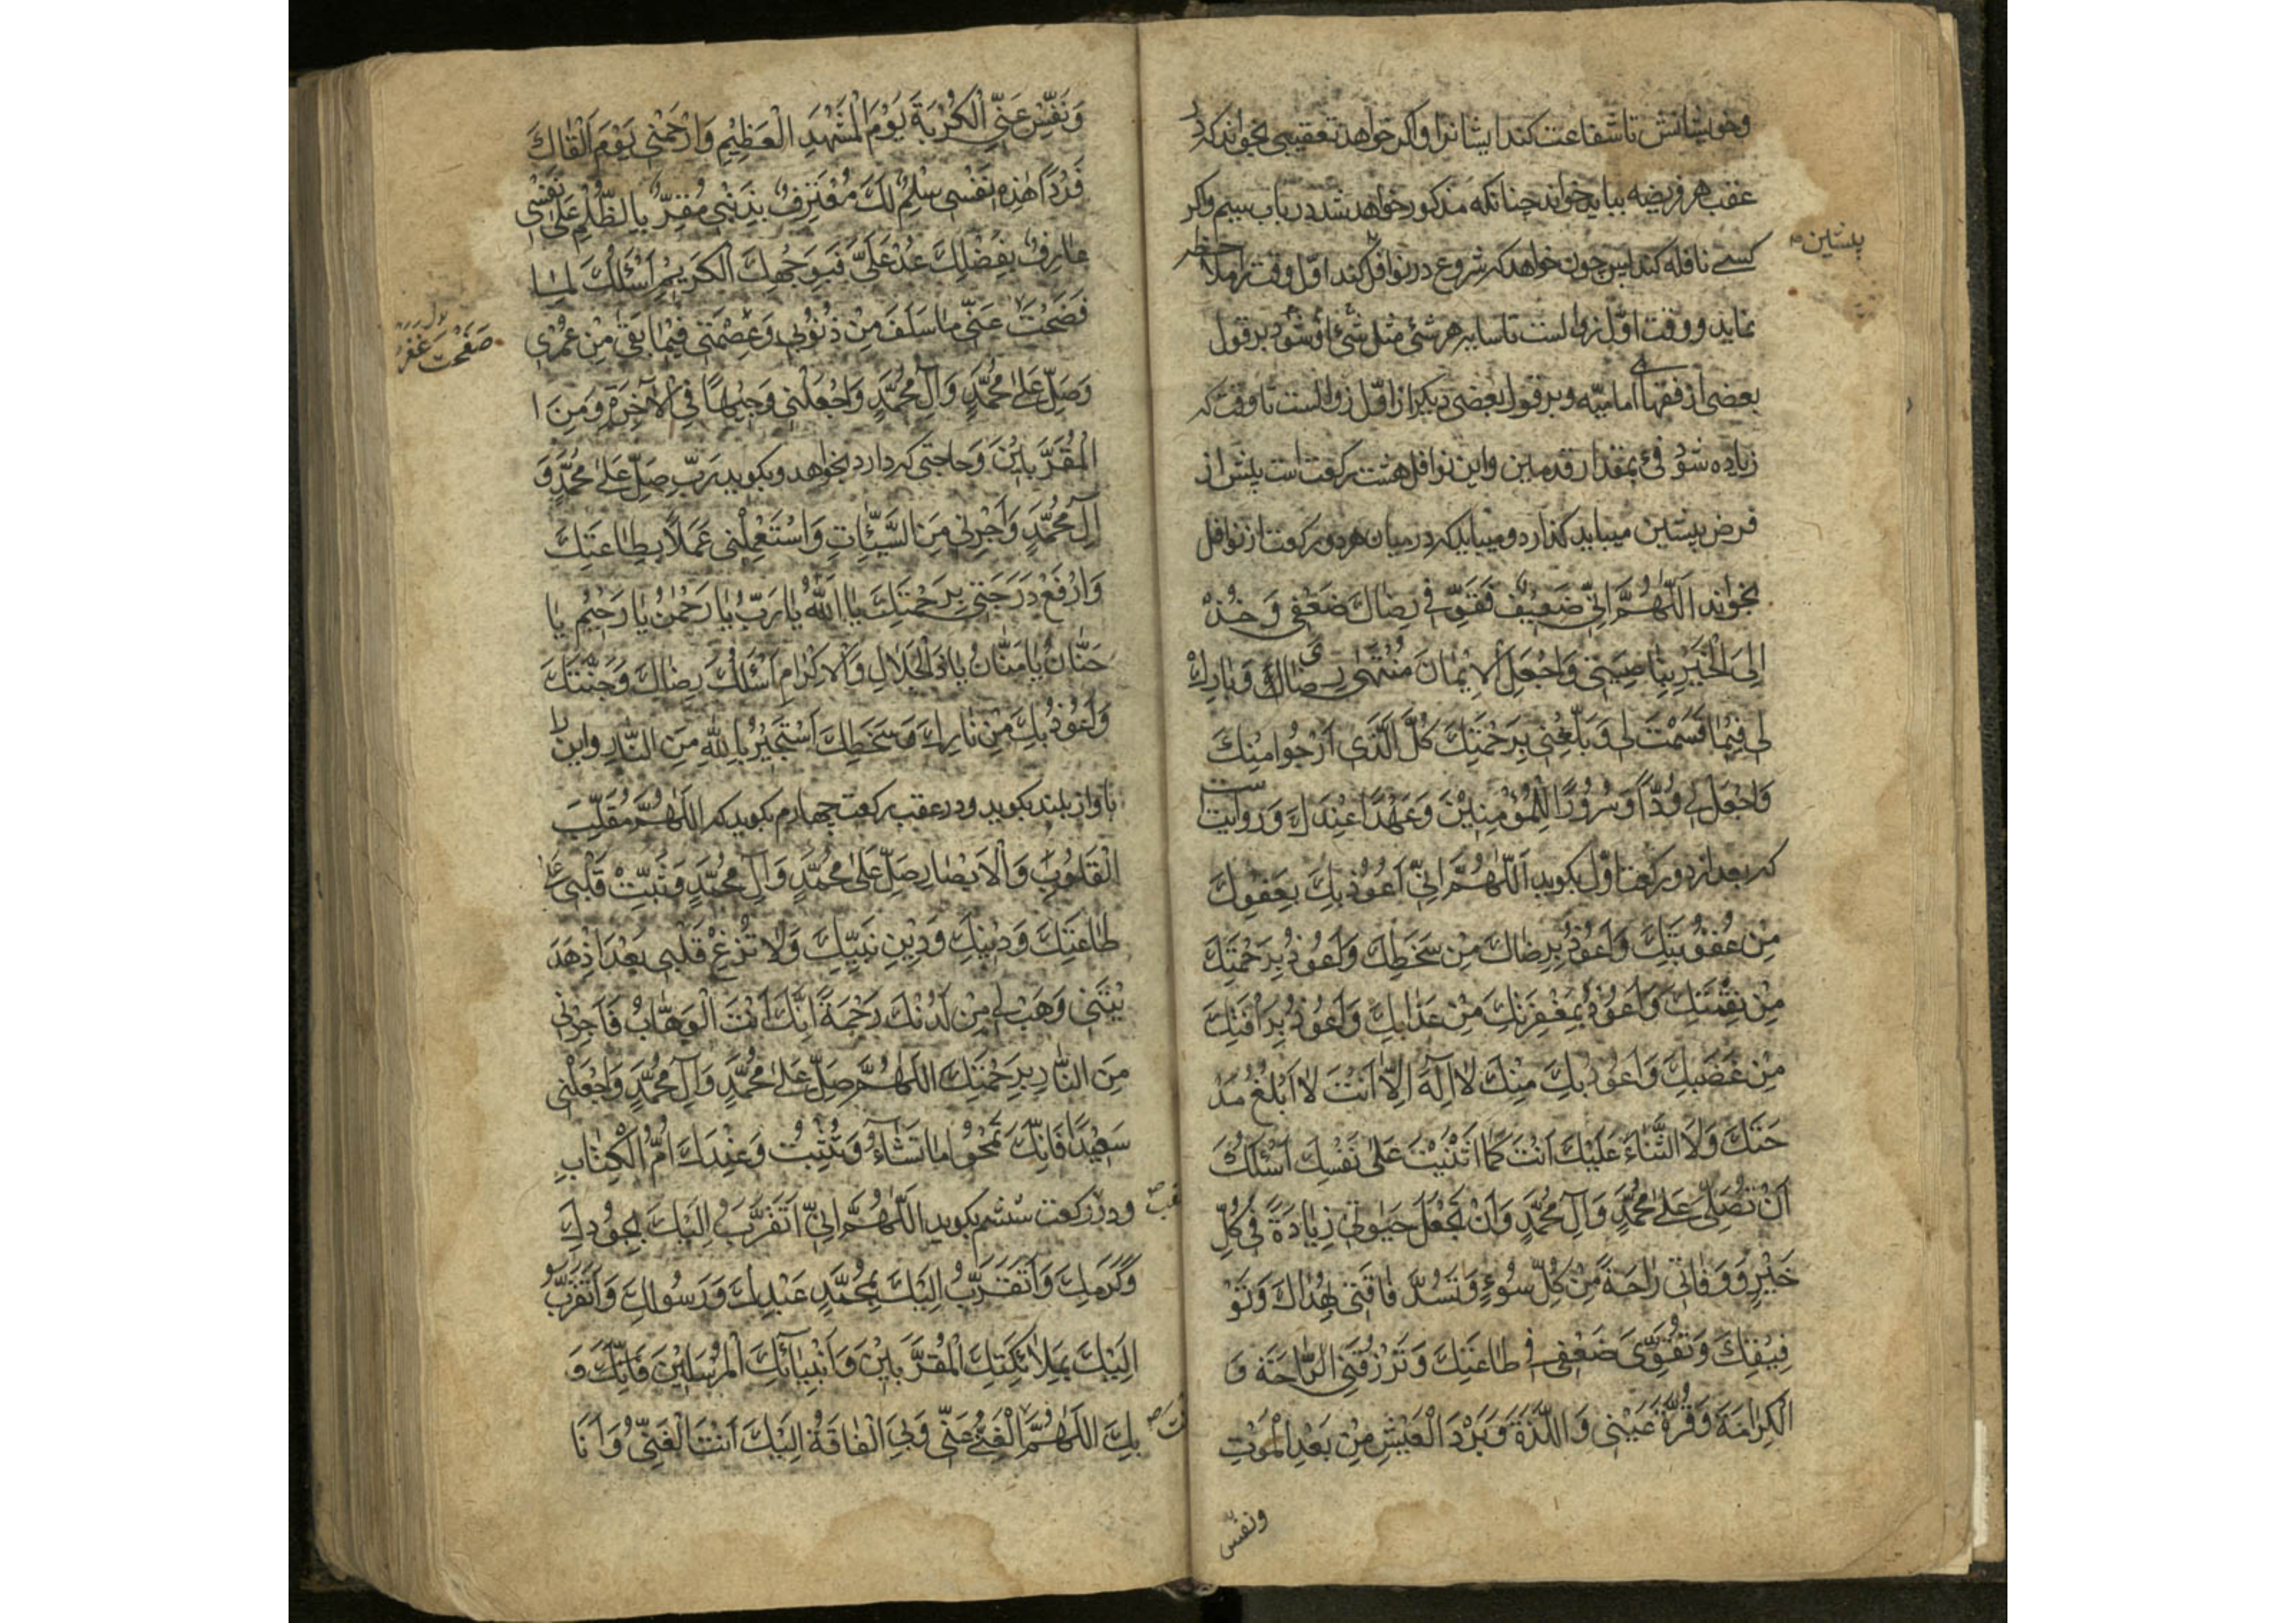 وخویشانش تا شفاعت کند ایشانرا واکر خواهد تعقیبی بخواند که در
عقب هر فریضه بباید خواند چنانکه مذکور خواهد شد در باب بیستم واکر
پیشین
کسے نافله کند پس چون خواهد که شروع در نوافل کند اوّل وقت را ملاحظه
نماید و وقت اوّل زوالست تا سایه هر شئی مثل شئی اوشود بر قول
بعضی از فقهاء امامیّه و بر قول بعضی دیکر از اوّل زوالست تا وقت که
زیاده شود فئ بمقدار قدمین واین نوافل هشت رکعت است پیش از
فرض پیشین میباید کذارد و میباید که در میان هر دو رکعت از نوافل
بخواند اَللّٰهُمَّ اِنّی ضَعیفٌ فَقَوِّ فی رِضاكَ ضَعْفی وَ خُذْ
اِلَی الْخَیْرِ بِناصِیَتی وَاجْعَلِ الْاِیْمانَ مُنْتَهٰی رِضاكَ وَبارِكْ
لی فِیْما قَسَمْتَ لی وَبَلِّغْنی بِرَحْمَتِكَ كُلَّ الَّذی اَرْجُوا مِنْكَ
وَاجْعَلْ لی وُدّاً وَسُرُورًا لِلْمُؤْمِنِیْنَ وَعَهْدًا عِنْدَكَ وَروایتست
که بعد از دو رکعت اوّل بکوید اَللّٰهُمَّ اِنّی اَعُوْذُ بِكَ بِعَفْوِكَ
مِنْ عُقُوْبَتِكَ وَاَعُوْذُ بِرِضاكَ مِنْ سَخَطِكَ وَاَعُوْذُ بِرَحْمَتِكَ
مِنْ نِقْمَتِكَ وَاَعُوْذُ بِمَغْفِرَتِكَ مِنْ عَذابِكَ وَاَعُوْذُ بِرَأْفَتِكَ
مِنْ غَضَبِكَ وَاَعُوْذُ بِكَ مِنْكَ لا اِلٰهَ اِلّا اَنْتَ لا اَبْلُغُ مَدْ
حَتَكَ وَلَا الثَّناءَ عَلَیْكَ اَنْتَ كَما اَثْنَیْتَ عَلٰی نَفْسِكَ اَسْئَلُكَ
اَنْ تُصَلِّیَ عَلٰی مُحَمَّدٍ وَآلِ مُحَمَّدٍ وَاَنْ تَجْعَلَ حَیٰوتی زِیادَةً فی كُلِّ
خَیْرٍ وَوَفاتی راحَةً مِنْ كُلِّ سُوْءٍ وَتَسُدَّ فاقَتی بِهُداكَ وَتَوْ
فِیْقِكَ وَتُقَوِّیَ ضَعْفی فی طاعَتِكَ وَتَرْزُقَنِی الرّاحَةَ وَ
الْكِرامَةَ وَقُرَّةَ عَیْنی وَاللَّذَةَ وَبَرْدَ الْعَیْشِ مِنْ بَعْدِ الْمَوْتِ
ونفّس
وَنَفِّسْ عَنِّی الْكُرْبَةَ یَوْمَ الْمَشْهَدِ الْعَظِیْمِ وَارْحَمْنی یَوْمَ اَلْقاكَ
فَرْدًا هٰذِهِ نَفْسی سِلْمٌ لَكَ مُعْتَرِفٌ بِذَنْبی مُقِرٌّ بِالظُّلْمِ عَلٰی نَفْسی
عارِفٌ بِفَضْلِكَ عُدْ عَلَیَّ فَبِوَجْهِكَ الْكَرِیْمِ اَسْئَلُكَ لَمّا
صَفَحْتَ غَفَرْ
فَصَحْتَ عَنّی ما سَلَفَ مِنْ ذُنُوْبی وَعَصَمْتَنی فِیْما بَقِیَ مِنْ عُمْری
وَصَلِّ عَلٰی مُحَمَّدٍ وَآلِ مُحَمَّدٍ وَاجْعَلْنی وَجِیْهًا فِی الْآخِرَةِ وَمِنَ ا
الْمُقَرَّبِیْنَ وَحاجتی که دارد بخواهد وبکوید رَبِّ صَلِّ عَلٰی مُحَمَّدٍ وَ
آلِ مُحَمَّدٍ وَاَجِرْنی مِنَ السَّیِّئاتِ وَاسْتَعْمِلْنی عَمَلاً بِطاعَتِكَ
وَارْفَعْ دَرَجَتی بِرَحْمَتِكَ یا اَللّٰهُ یا رَبُّ یا رَحْمٰنُ یا رَحِیْمُ یا
حَنّانُ یا مَنّانُ یا ذَالْجَلالِ وَالْاِكْرامِ اَسْئَلُكَ رِضاكَ وَجَنَّتَكَ
وَاَعُوْذُ بِكَ مِنْ نارِكَ وَسَخَطِكَ اَسْتَجِیْرُ بِاللّٰهِ مِنَ النّارِ واین را
باواز بلند بکوید و در عقب رکعت چهارم بکوید که اَللّٰهُمَّ مُقَلِّبَ
الْقُلُوْبِ وَالْاَبْصارِ صَلِّ عَلٰی مُحَمَّدٍ وَآلِ مُحَمَّدٍ وَثَبِّتْ قَلْبی عَلٰی
طاعَتِكَ وَدِیْنِكَ وَدِیْنِ نَبِیِّكَ وَلا تُزِغْ قَلْبی بَعْدَ اِذْ هَدَ
یْتَنی وَهَبْ لی مِنْ لَدُنْكَ رَحْمَةً اِنَّكَ اَنْتَ الْوَهّابُ فَاَجِرْنی
مِنَ النّارِ بِرَحْمَتِكَ اَللّٰهُمَّ صَلِّ عَلٰی مُحَمَّدٍ وَآلِ مُحَمَّدٍ وَاجْعَلْنی
سَعِیْدًا فَاِنَّكَ تَمْحُوا ما تَشاءُ وَتُثْبِتُ وَعِنْدَكَ اُمُّ الْكِتابِ
ودر رکعت ششم بکوید اَللّٰهُمَّ اِنّی اَتَقَرَّبُ اِلَیْكَ بِجُوْدِكَ
وَكَرَمِكَ وَاَتَقَرَّبُ اِلَیْكَ بِمُحَمَّدٍ عَبْدِكَ وَرَسُوْلِكَ وَاَتَقَرَّبُ
اِلَیْكَ بِمَلائِكَتِكَ الْمُقَرَّبِیْنَ وَاَنْبِیائِكَ الْمُرْسَلِیْنَ وَ
بِكَ اَللّٰهُمَّ الْغِنٰی عَنّی وَبِیَ الْفاقَةُ اِلَیْكَ اَنْتَ الْغَنِیُّ وَاَنَا